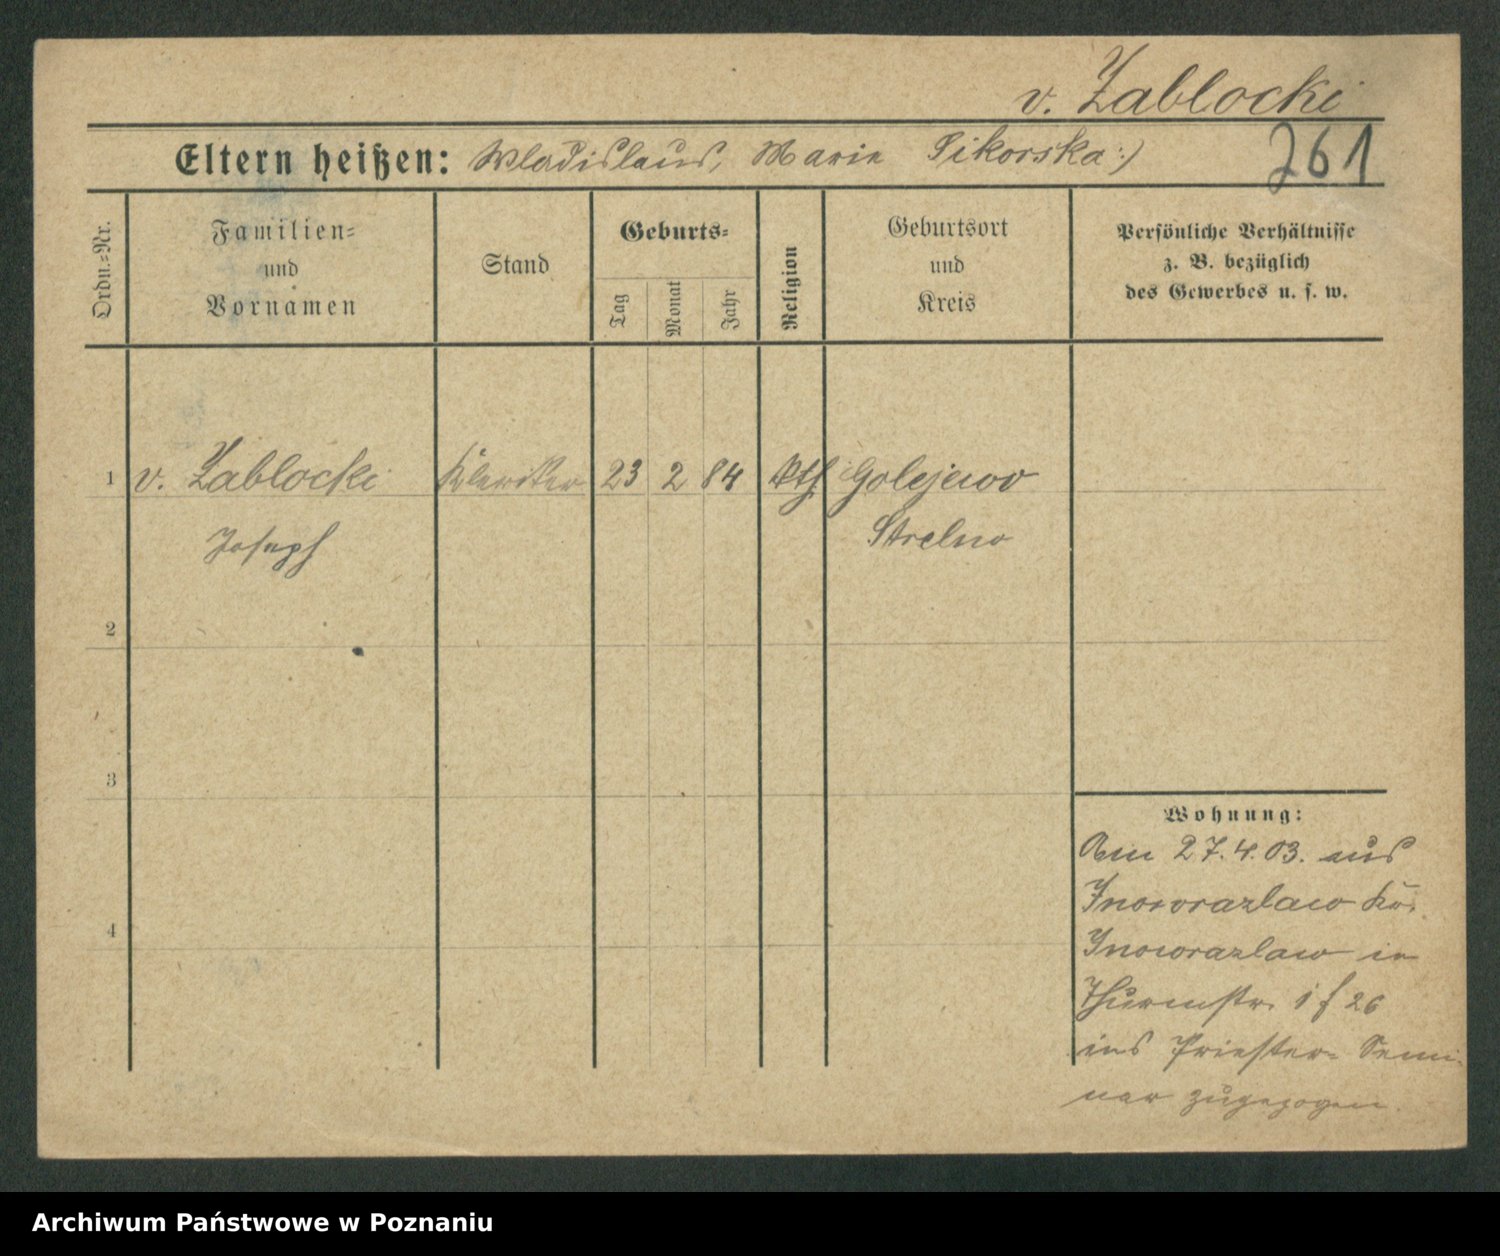 v. Zablocki
Eltern heißen: Wladislaus, Marie Sikorska :)
261
Ordn.=Nr.
Familien=
und
Vornamen
Stand
Geburts=
Tag
Monat
Jahr
Religion
Geburtsort
und
Kreis
Persönliche Verhältnisse
z. B. bezüglich
des Gewerbes u. s. w.
1 v. Zablocki Kleriker 23 2 84 kth Golejewo
Joseph Strelno
2
3
4
Wohnung:
Am 27.4.03. aus
Inowrazlaw Kr.
Inowrazlaw in
Thurmstr. 26
ins Priester- Semi-
nar zugezogen.
Archiwum Państwowe w Poznaniu